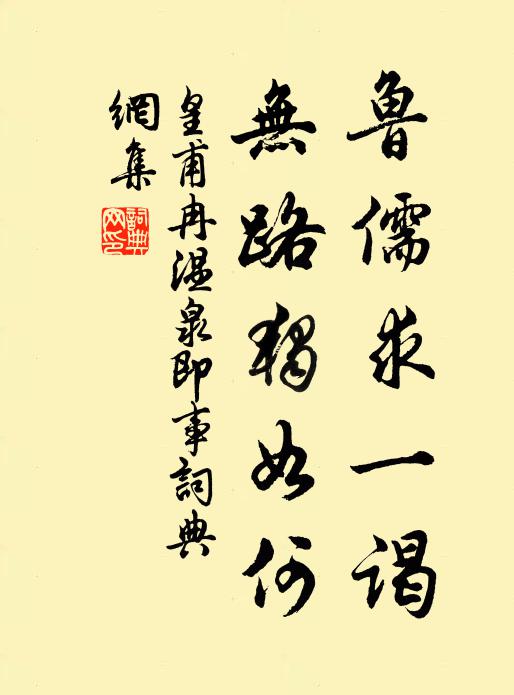 鲁儒求一谒
無路獨如何
皇甫冉溫泉即事詞典
網集
詞典網印